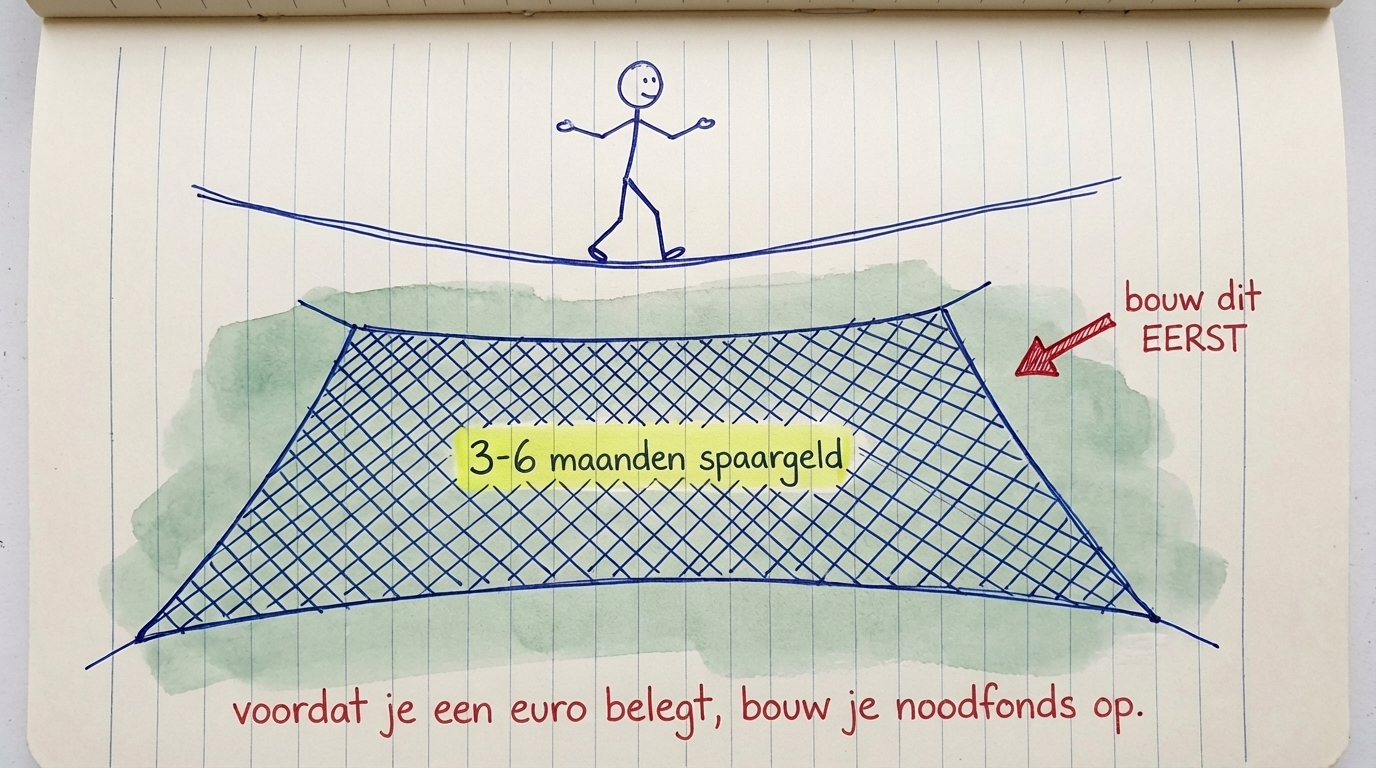 bouw dit
EERST
3-6 maanden spaargeld
voordat je een euro belegt, bouw je noodfonds op.